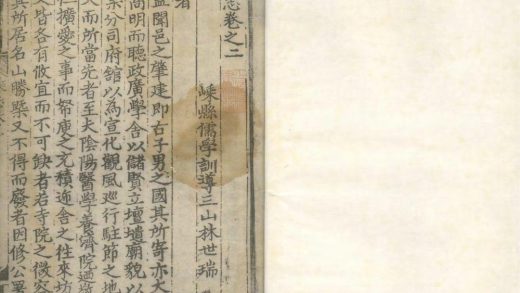 志卷之二
嵊縣儒學訓導三山林世瑞
署
盖聞邑之肇建即古子男之國其所寄亦大
向明而聽政廣學舍以儲賢立壇壝廟貌以
柒分司府舘以為宣化觀風巡行駐節之地
大而所當先者至大陰陽醫學養濟院
仁擴愛之事而帑庾之充積逓舍之往來坊
又皆各有攸宜而不可缺者若寺院之
其所居名山勝槩又不得而廢者因修公署